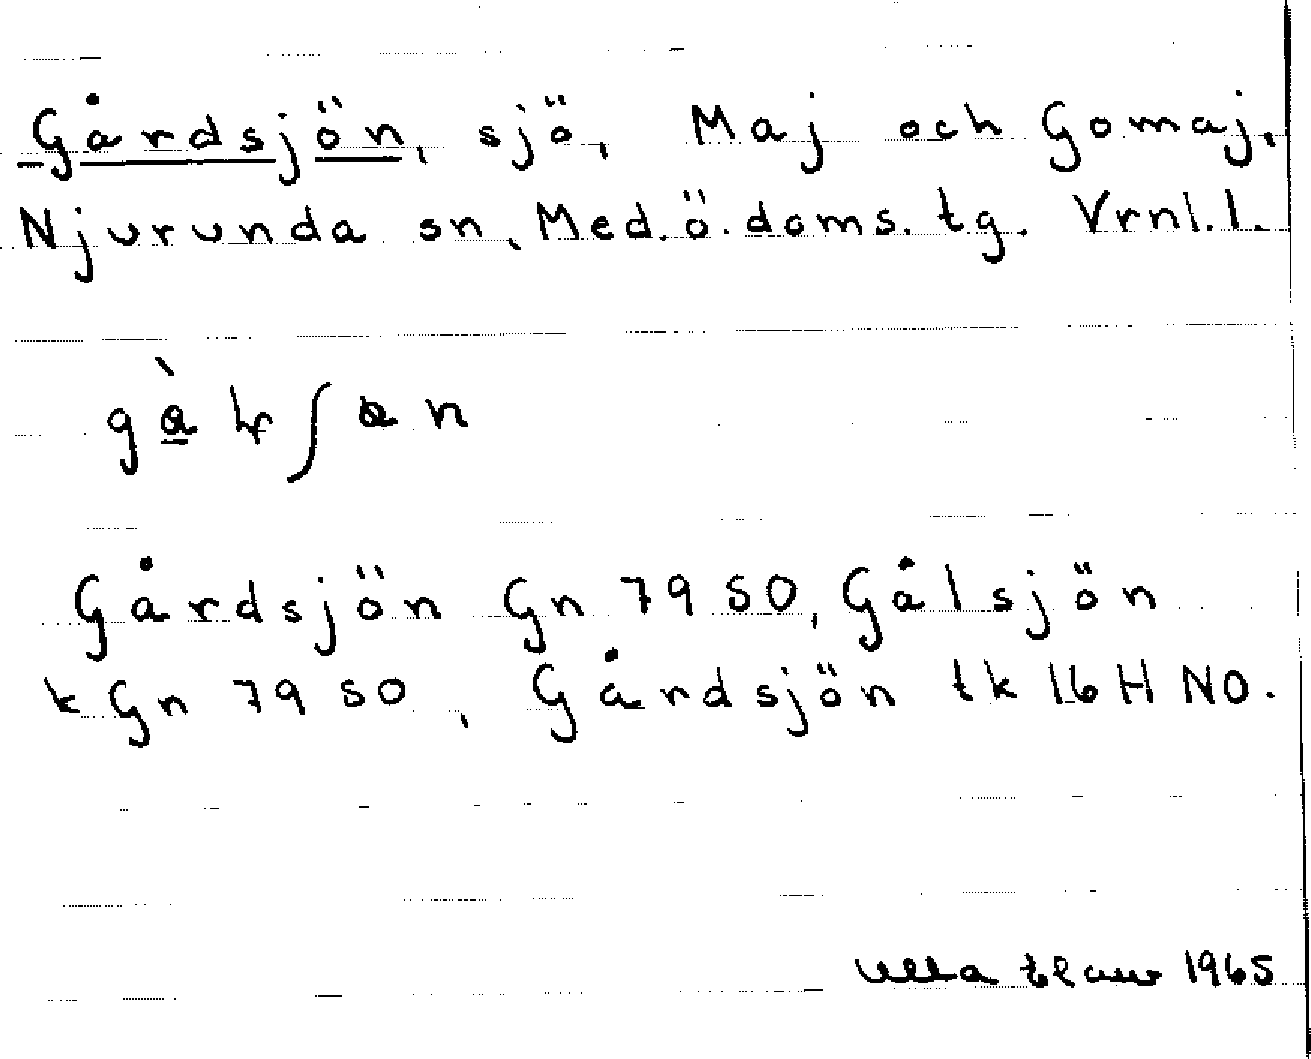 Gårdsjön, sjö, Maj och Gomaj,
Njurunda sn, Med.ö.doms.tg. Vrnl.l.
Gårdsjön Gn 79 SO, Gålsjön
k Gn 79 SO, Gårdsjön tk 16 H NO.
Ulla 1965